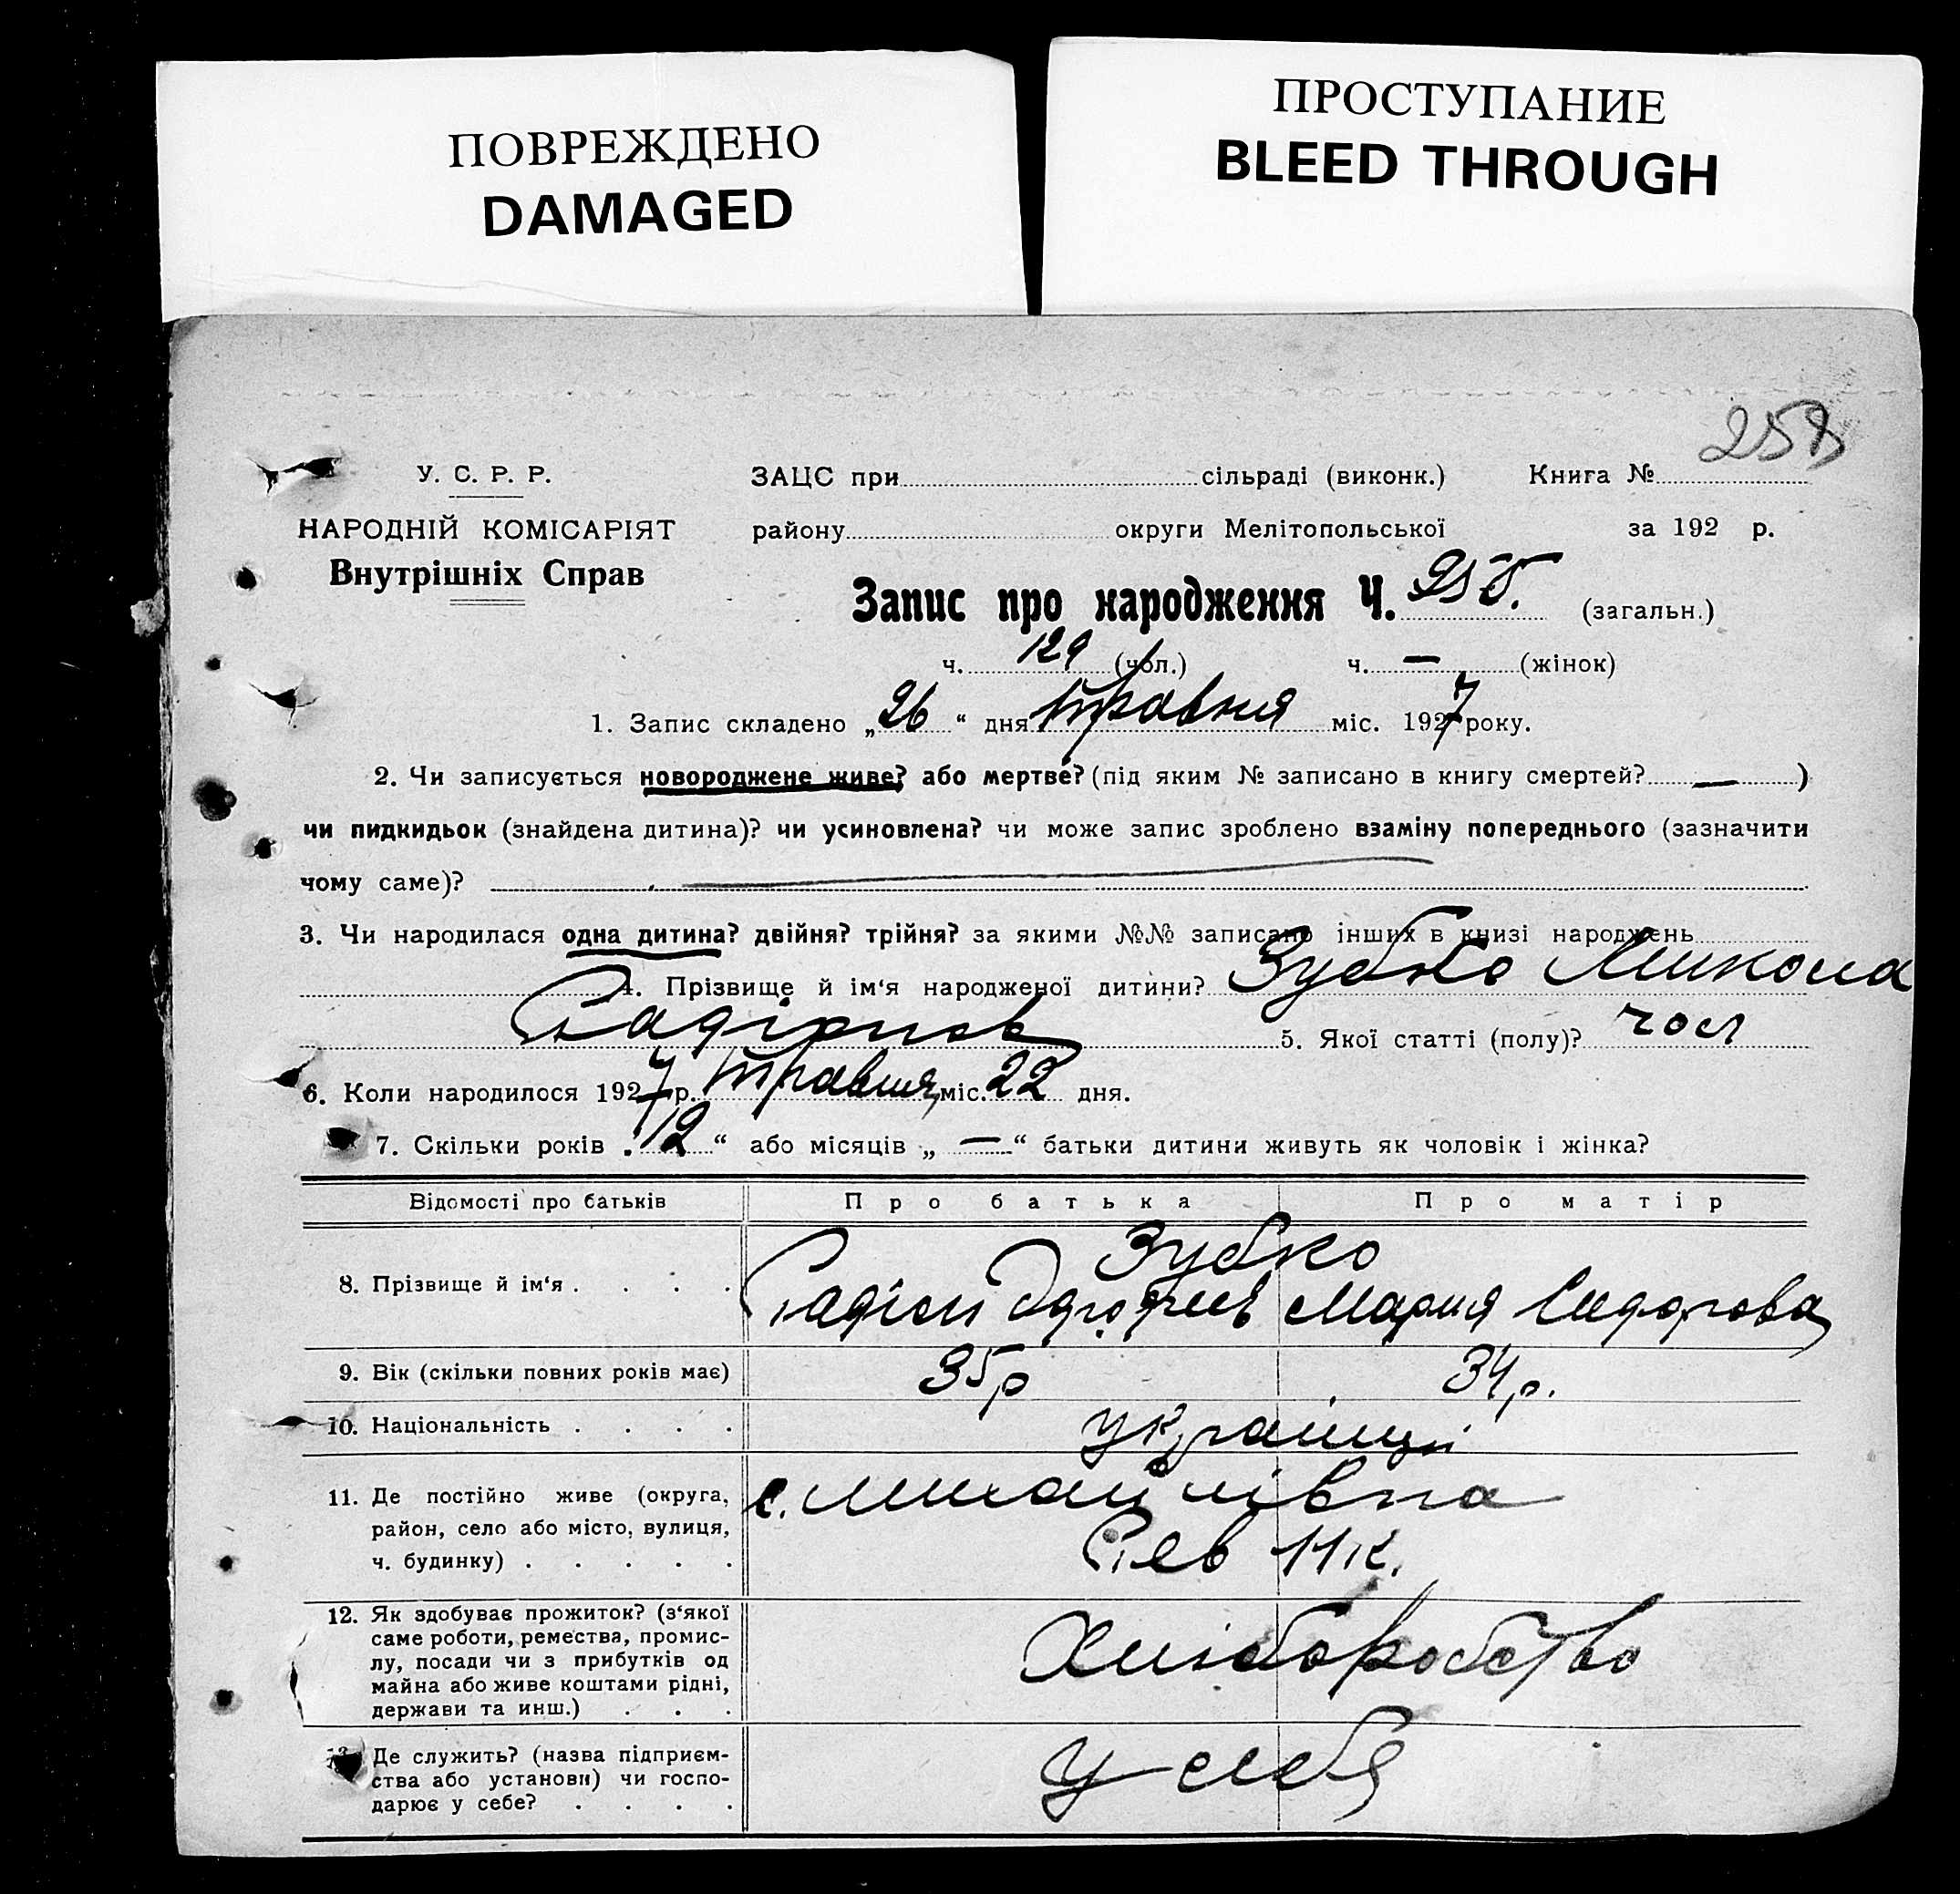 ПОВРЕЖДЕНО
DAMAGED
ПРОСТУПАНИЕ
BLEED THROUGH
258
У. С. Р. Р.
НАРОДНІЙ КОМІСАРІЯТ
Внутрішніх Справ
ЗАЦС при сільраді (виконк.) Книга №
району округи Мелітопольської за 192 р.
Запис про народження Ч. 258. (загальн.)
ч. 129 (чол.) ч. — (жінок)
1. Запис складено „26“ дня травня міс. 1927 року.
2. Чи записується новороджене живе? або мертве? (під яким № записано в книгу смертей? — )
чи пидкидьок (знайдена дитина)? чи усиновлена? чи може запис зроблено взаміну попереднього (зазначити
чому саме)?
3. Чи народилася одна дитина? двійня? трійня? за якими №№ записано інших в книзі народжень
4. Прізвище й ім‘я народженої дитини? Зубко Микола
Радіонов 5. Якої статті (полу)? чол
6. Коли народилося 1927 р. травня міс. 22 дня.
7. Скільки років „12“ або місяців „ — “ батьки дитини живуть як чоловік і жінка?
Відомості про батьків Про батька Про матір
Зубко
8. Прізвище й ім‘я . . . . Радіон Марія Сидорова
9. Вік (скільки повних років має) 35р 34р.
10. Національність . . . . українці
11. Де постійно живе (округа, с. Михайлівка
район, село або місто, вулиця,
ч. будинку) . . . . . 11 к.
12. Як здобуває прожиток? (з‘якої
саме роботи, ремества, промис-
лу, посади чи з прибутків од Хліборобство
майна або живе коштами рідні,
держави та инш.) . . .
Де служить? (назва підприєм-
ства або установи) чи госпо- у себя
дарює у себе? . . . .